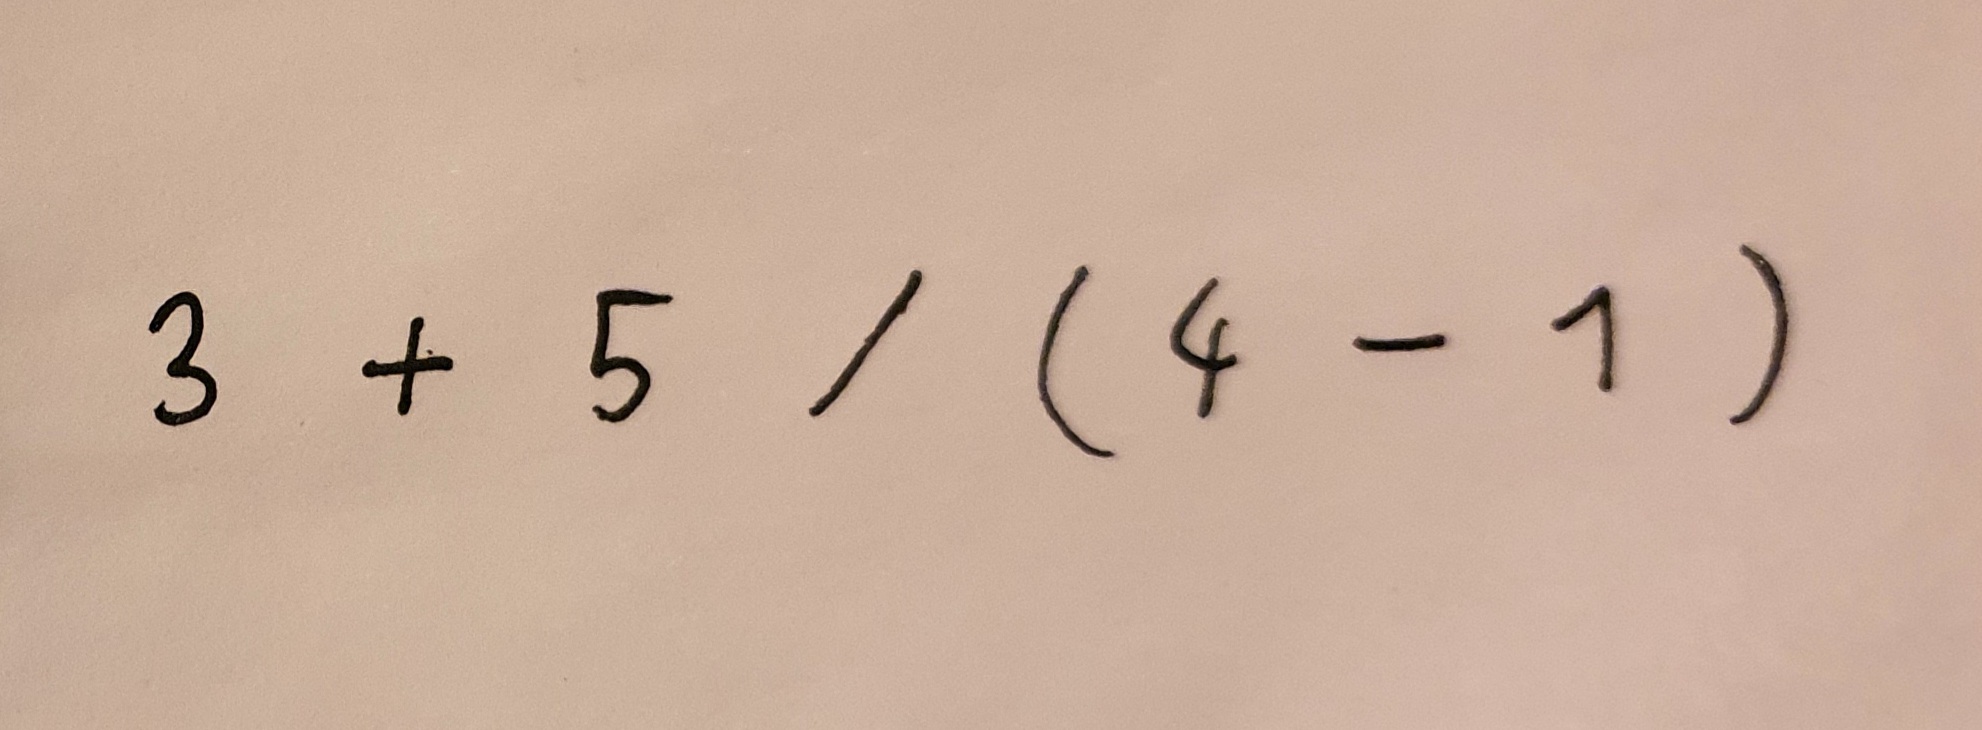 3 + 5 / ( 4 - 1 )